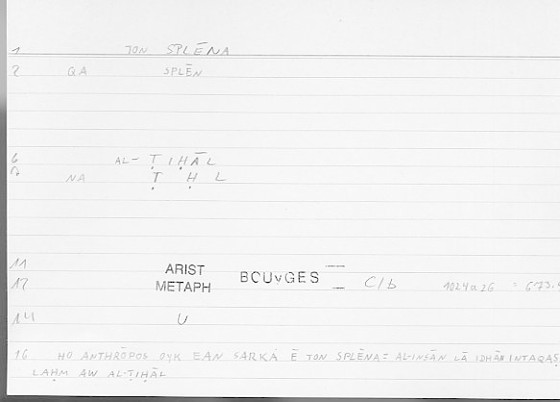 1 TON SPLĒNA
2 QA SPLĒN
6 AL-ṬIḤĀL
NA Ṭ Ḥ L
11 ARIST BOUYGES
12 METAPH C/b 1024a26 = 673.
14 U
16 HO ANTHRŌPOS OYK EAN SARKA Ē TON SPLĒNA = AL-INSĀN LĀ IDHĀ INTAQAṢ
LAḤM AW AL-ṬIḤĀL